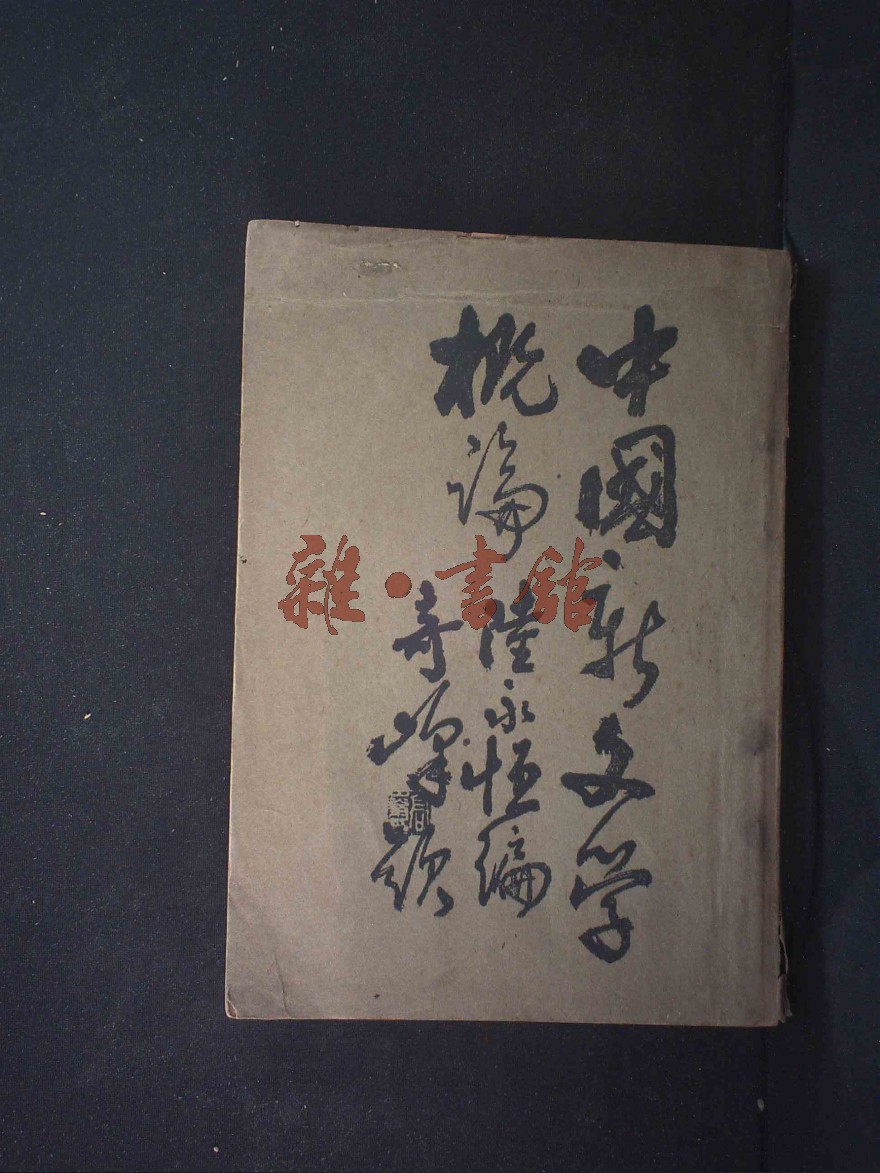 中國新文学
概論 陸永恒編
奇峰題
雜·書館